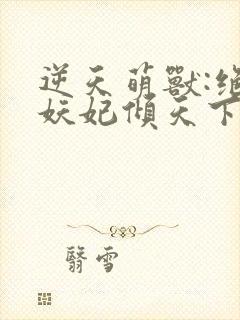 逆天萌獸:绝
妖妃傾天下
翳雪